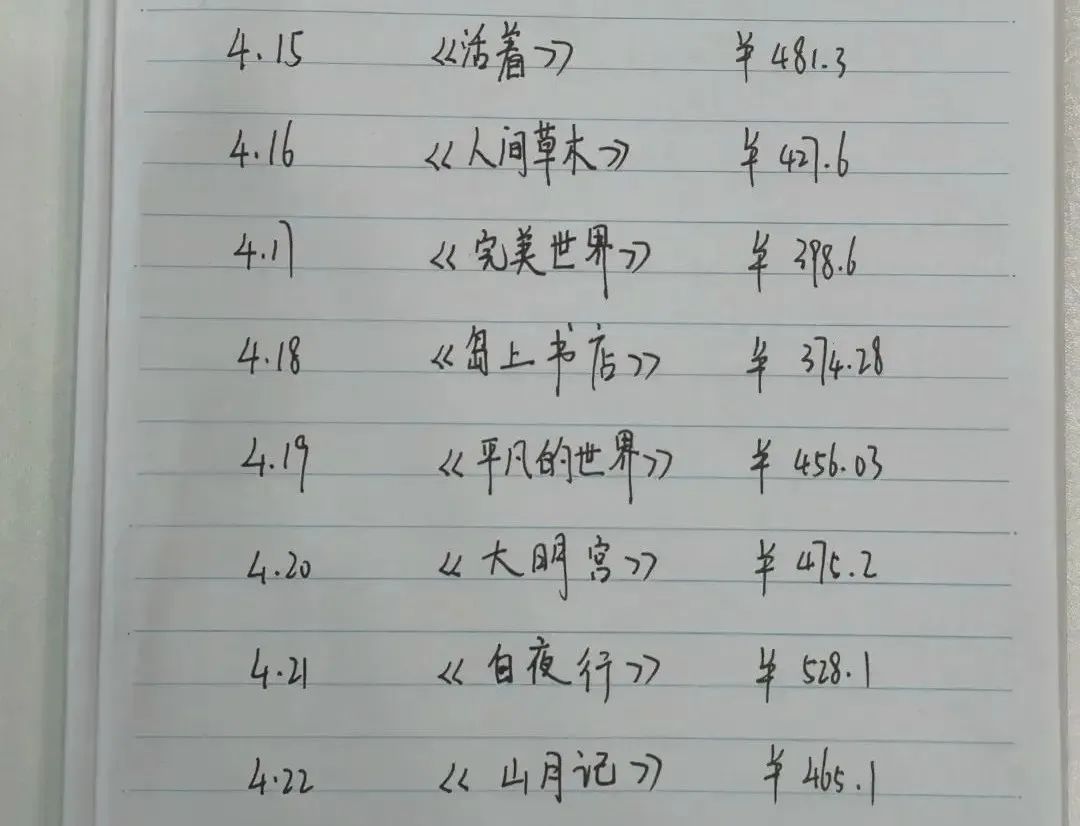 4.15 《活着》 ¥481.3
4.16 《人间草木》 ¥427.6
4.17 《完美世界》 ¥398.6
4.18 《岛上书店》 ¥374.28
4.19 《平凡的世界》 ¥456.03
4.20 《大明宫》 ¥475.2
4.21 《白夜行》 ¥528.1
4.22 《山月记》 ¥465.1